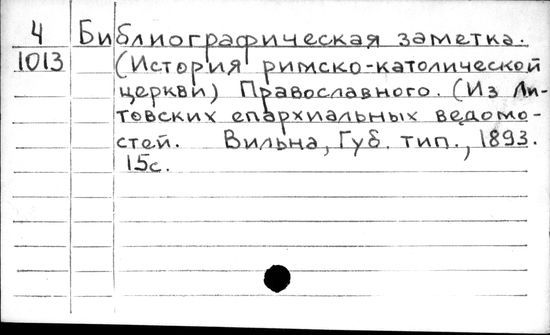 4 Библиографическая заметка.
1013 (История римско-католической
церкви) Православного. (Из Ли-
товских епархиальных ведомо-
стей. Вильна, Губ. тип., 1893.
15с.